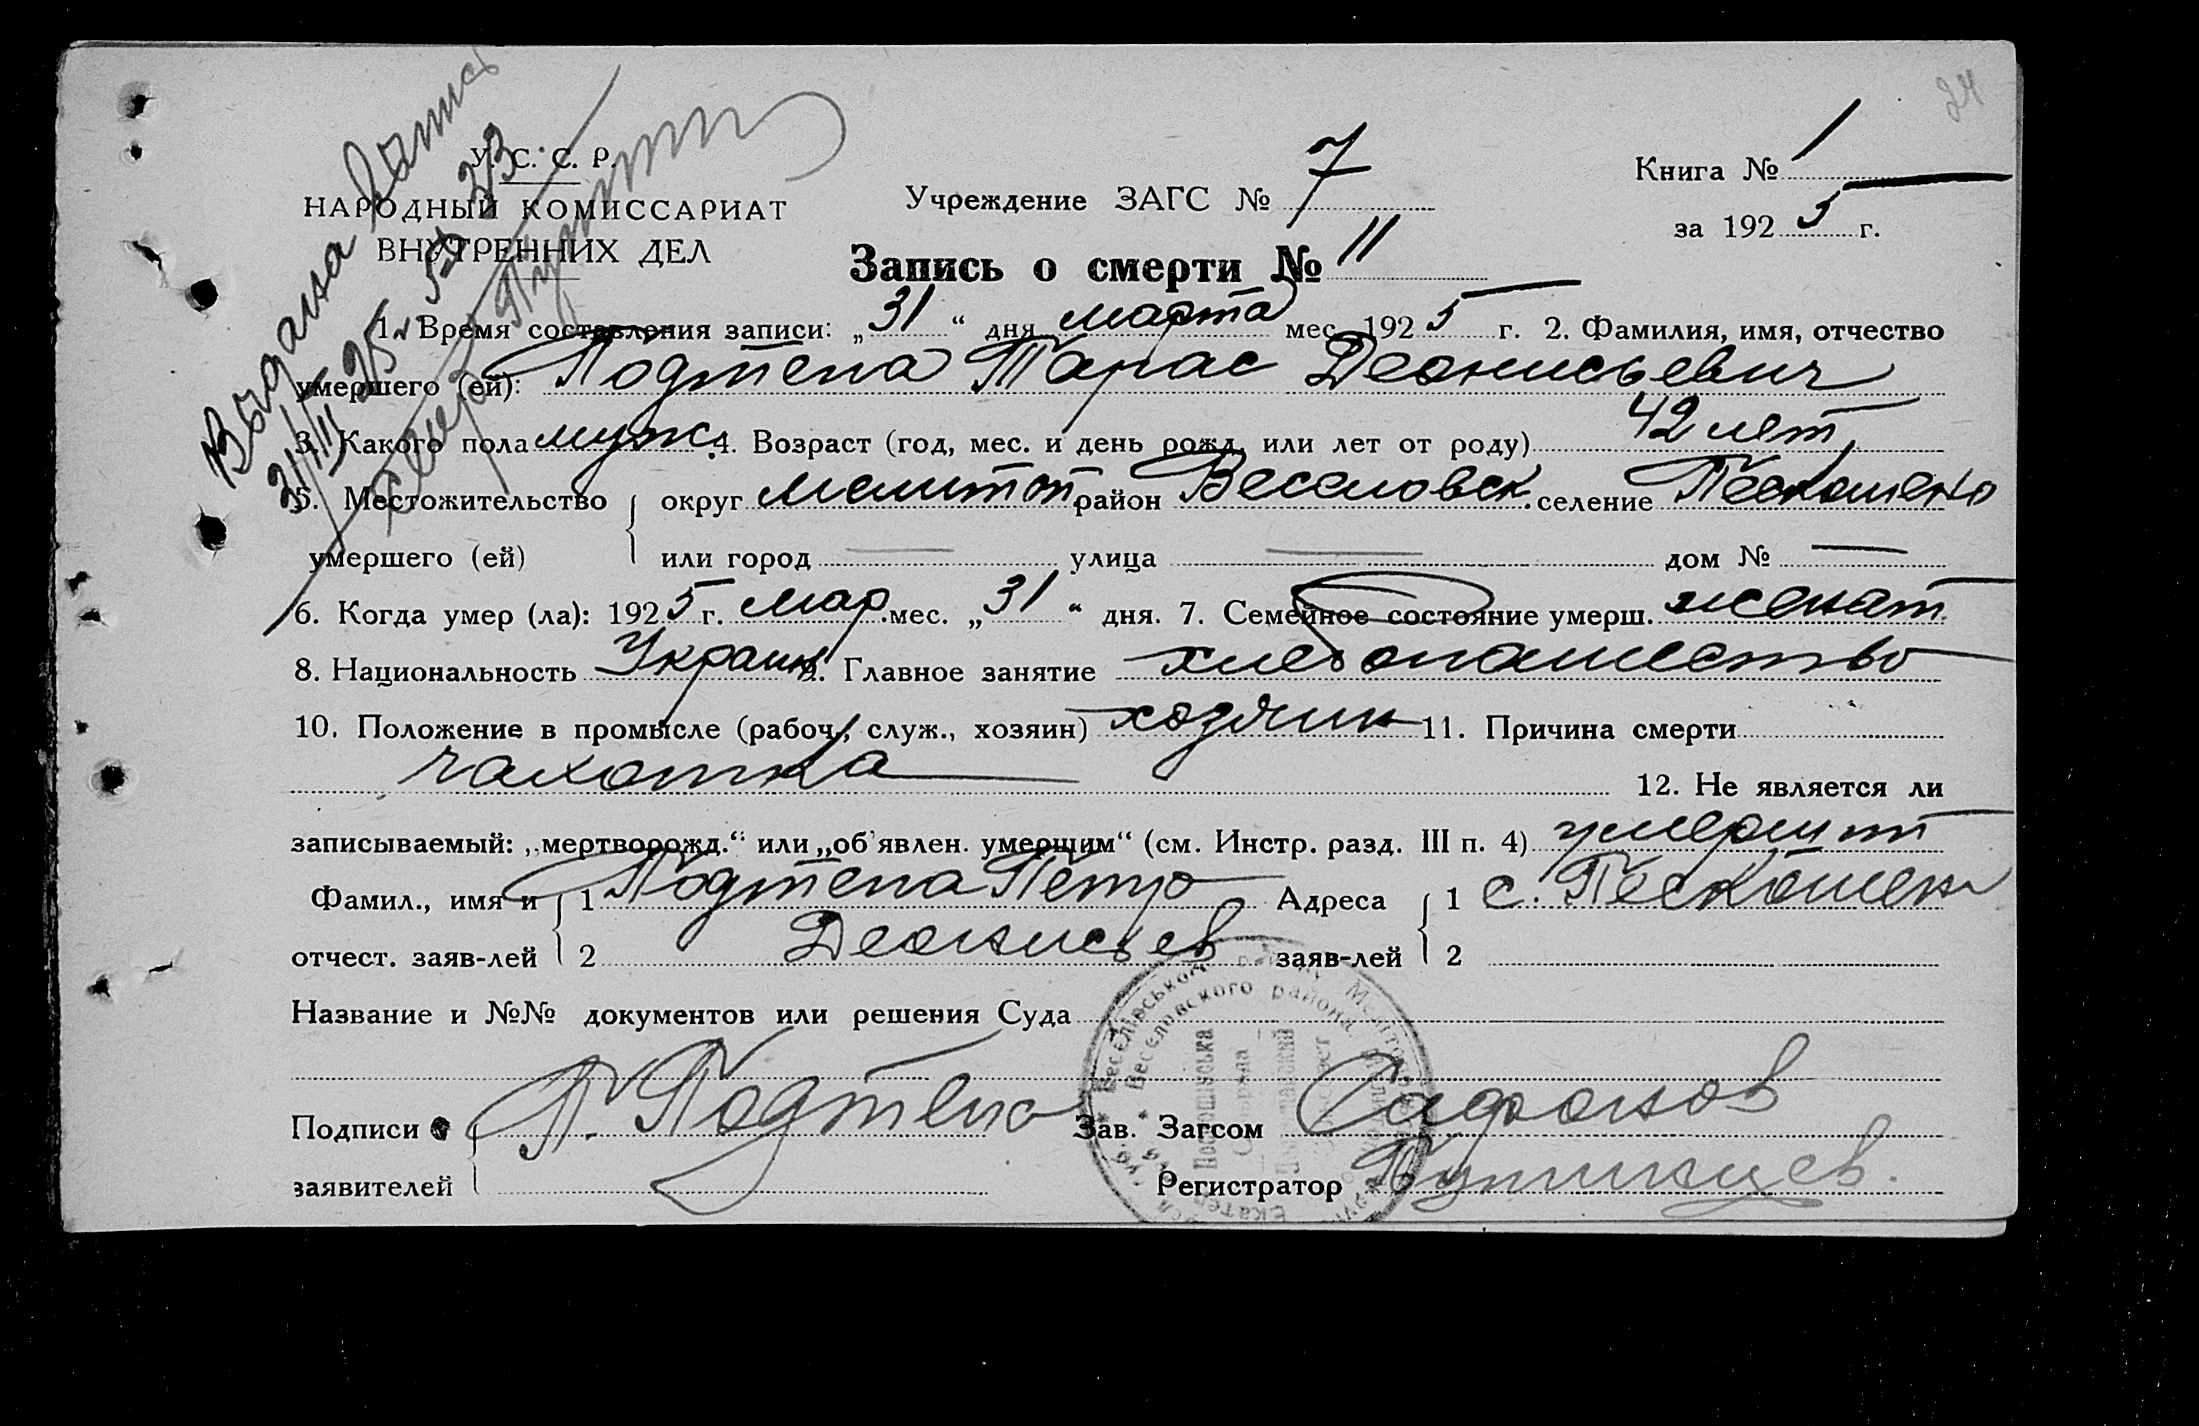 24
Выдана Запись
31/III 25 г. № 23
У. С. С. Р.
НАРОДНЫЙ КОМИССАРИАТ
ВНУТРЕННИХ ДЕЛ
Учреждение ЗАГС № 7
Книга № 1
за 1925 г.
Запись о смерти № 11
1. Время составления записи: „31“ дня марта мес. 1925 г. 2. Фамилия, имя, отчество
умершего (ей): Подтепа Тарас Деонисьевич
3. Какого пола муж. 4. Возраст (год, мес. и день рожд. или лет от роду) 42 лет,
5. Местожительство округ Мелитоп район Веселовск. селение Пескошено
умершего (ей) или город — улица — дом № —
6. Когда умер (ла): 1925 г. мар. мес. „31“ дня. 7. Семейное состояние умерш. женат
8. Национальность Украин 9. Главное занятие хлебопашество
10. Положение в промысле (рабоч., служ., хозяин) хозяин 11. Причина смерти
чахотка 12. Не является ли
записываемый: „мертворожд.“ или „об'явлен. умершим“ (см. Инстр. разд. III п. 4) умерший
Фамил., имя и 1 Подтепа Петро Адреса 1 с. Пескошен
отчест. заяв-лей 2 Деонисьев заяв-лей 2
Название и №№ документов или решения Суда
Подписи П. Подтепа Зав. Загсом Сафонов
заявителей Регистратор
Веселовского района